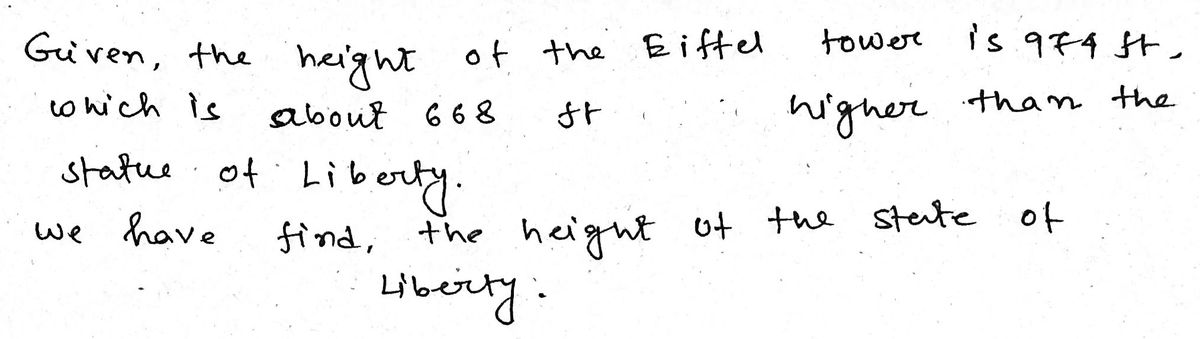 Given, the height of the Eiffel tower is 974 ft,
which is about 668 ft higher than the
statue of Liberty.
we have find, the height of the state of
Liberty.